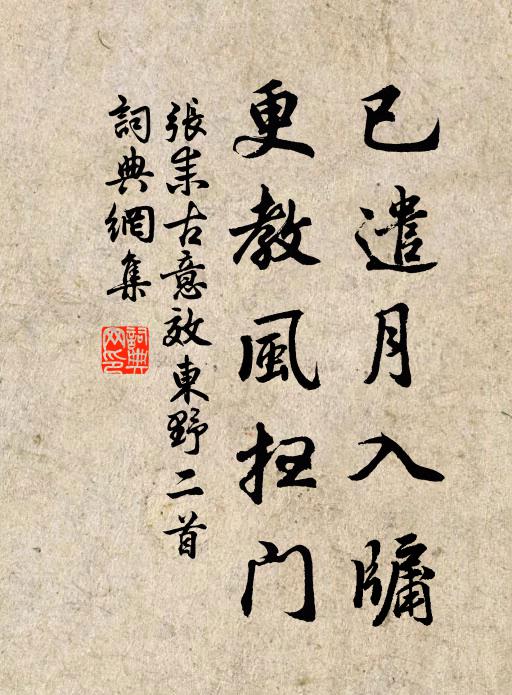 已遣月入牖
更教風門
張耒古意效東野二首
詞典網集
詞典网印